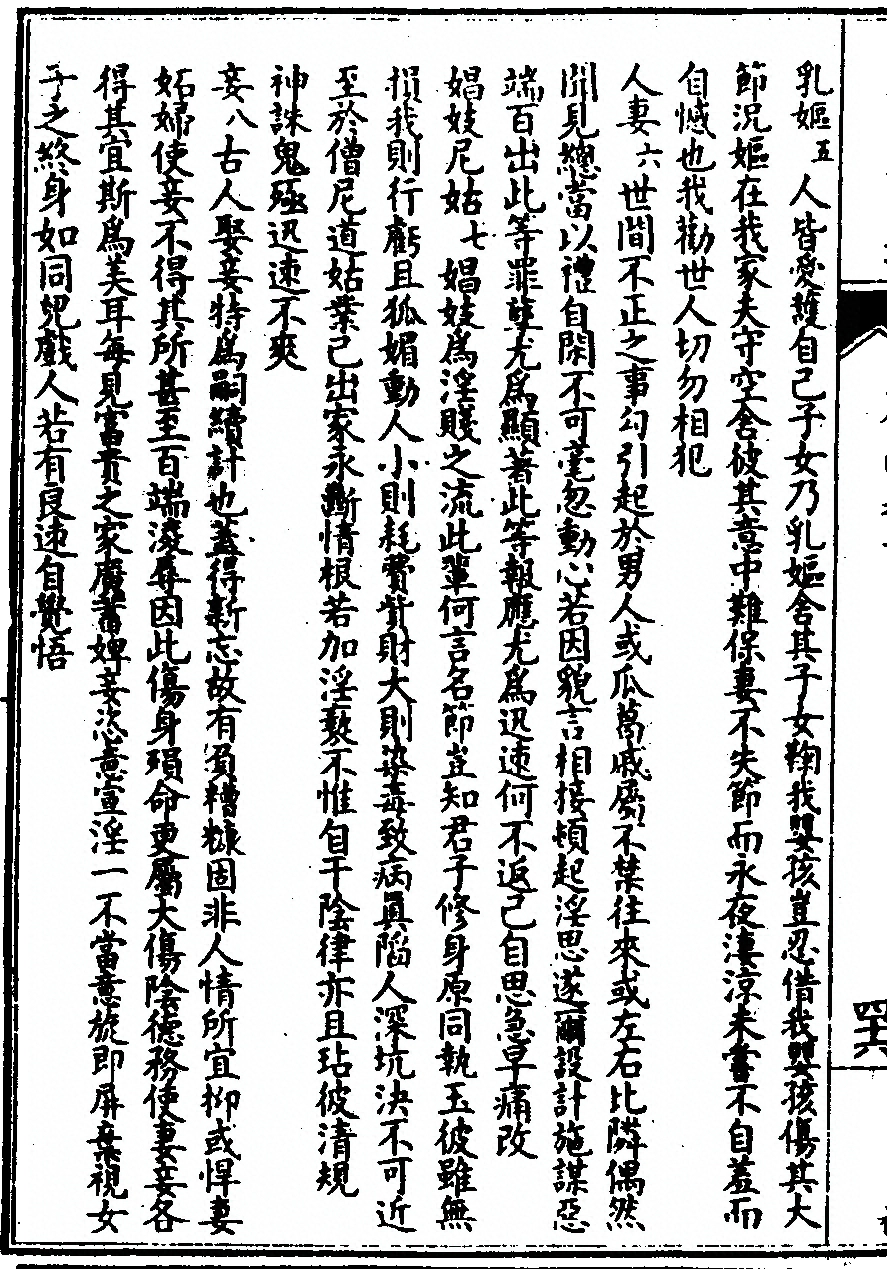 乳嫗五 人皆愛護自己子女乃乳嫗舍其子女鞠我嬰孩豈忍借我嬰孩傷其大
節況嫗在我家夫守空舍彼其意中難保妻不失節而永夜淒涼未嘗不自羞而
自憾也我勸世人切勿相犯
人妻六 世間不正之事勾引起於男人或瓜葛戚屬不禁往來或左右比隣偶然
聞見總當以禮自閑不可毫忽動心若因貌言相接頓起淫思遂爾設計施謀惡
端百出此等罪孽尤爲顯著此等報應尤爲迅速何不返己自思急早痛改
娼妓尼姑七 娼妓爲淫賤之流此輩何言名節豈知君子修身原同執玉彼雖無
損我則行虧且狐媚動人小則耗費貲財大則染毒致病眞陷人深坑決不可近
至於僧尼道姑業已出家永斷情根若加淫褻不惟自干陰律亦且玷彼清規
神誅鬼殛迅速不爽
妾八 古人娶妾特爲嗣續計也蓋得新忘故有負糟糠固非人情所宜抑或悍妻
妬婦使妾不得其所甚至百端淩辱因此傷身殞命更屬大傷陰德務使妻妾各
得其宜斯爲美耳每見富貴之家廣蓄婢妾恣意宣淫一不當意旋即屏棄視女
子之終身如同兒戲人若有良速自覺悟
四十六